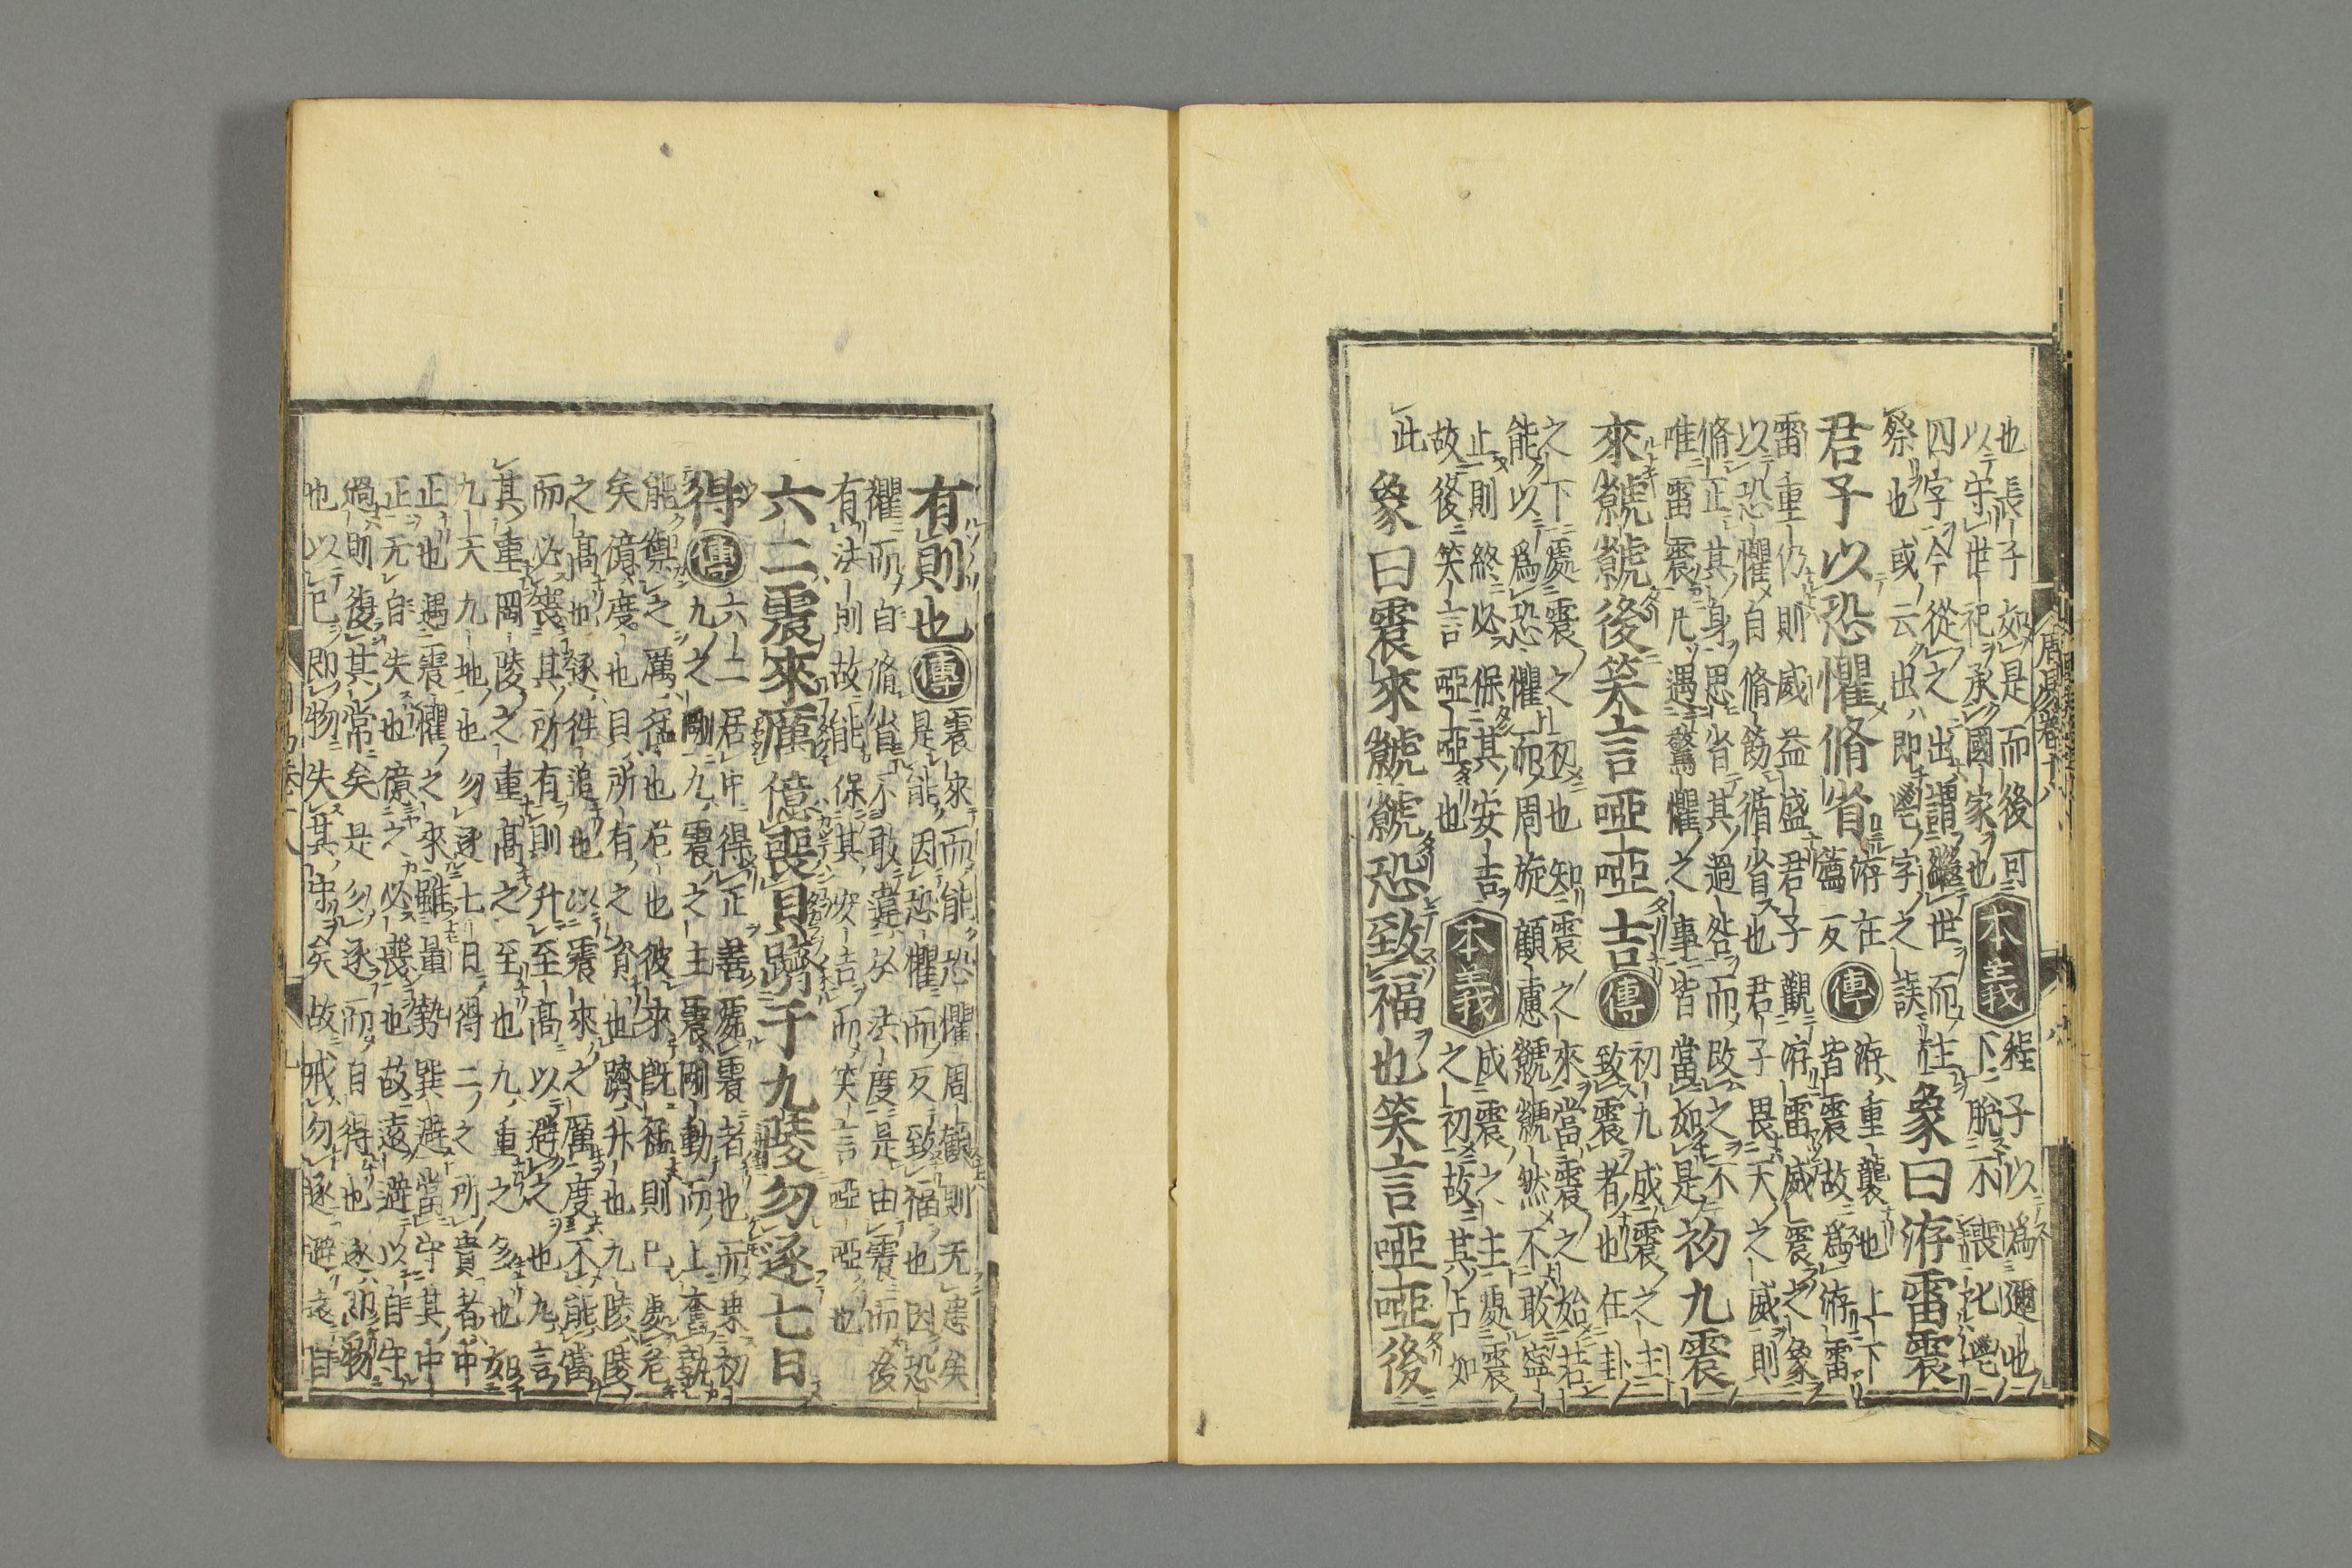 也長子如是而後可
以守世祀承國家也
本義
程子以爲邇也
下脫不喪匕鬯
四字今從之出謂繼世而主
祭也或云出即鬯字之誤
象曰洊雷震
君子以恐懼脩省
洊在
薦反
傳
洊重襲也上下
皆震故爲洊雷
雷重仍則威益盛君子觀洊雷威震之象
以恐懼自脩飭循省也君子畏天之威則
脩正其身思省其過咎而改之不
唯雷震凡遇驚懼之事皆當如是
初九震
來虩虩後笑言啞啞吉
傳
初九成震之主
致震者也在卦
之下處震之初也知震之來當震之始若
能以爲恐懼而周旋顧慮虩虩然不敢寧
止則終必保其安吉
故後笑言啞啞也
本義
成震之主處震
之初故其占如
此
象曰震來虩虩恐致福也笑言啞啞後
周易卷十八
八
有則也
傳
震來而能恐懼周顧則无患矣
是能因恐懼而反致福也因恐
懼而自脩省不敢違於法度是由震而後
有法則故能保其安吉而笑言啞啞也
六二震來厲億喪貝躋于九陵勿逐七日
得
傳
六二居中得正善處震者也而乘初
九之剛九震之主震剛動而上奮孰
能禦之厲猛也危也彼來既猛則己處危
矣億度也貝所有之資也躋升也九陵陵
之高也逐往追也以震來之厲度不能當
而必喪其所有則升至高以避之也九言
其重岡陵之重高之至也九重之多也如
九天九地也勿逐七日得二之所貴者中
正也遇震懼之來雖量勢巽避當守其中
正无自失也億之必喪也故遠避以自守
過則復其常矣是勿逐而自得也逐即物
也以己即物失其守矣故戒勿逐避遠自